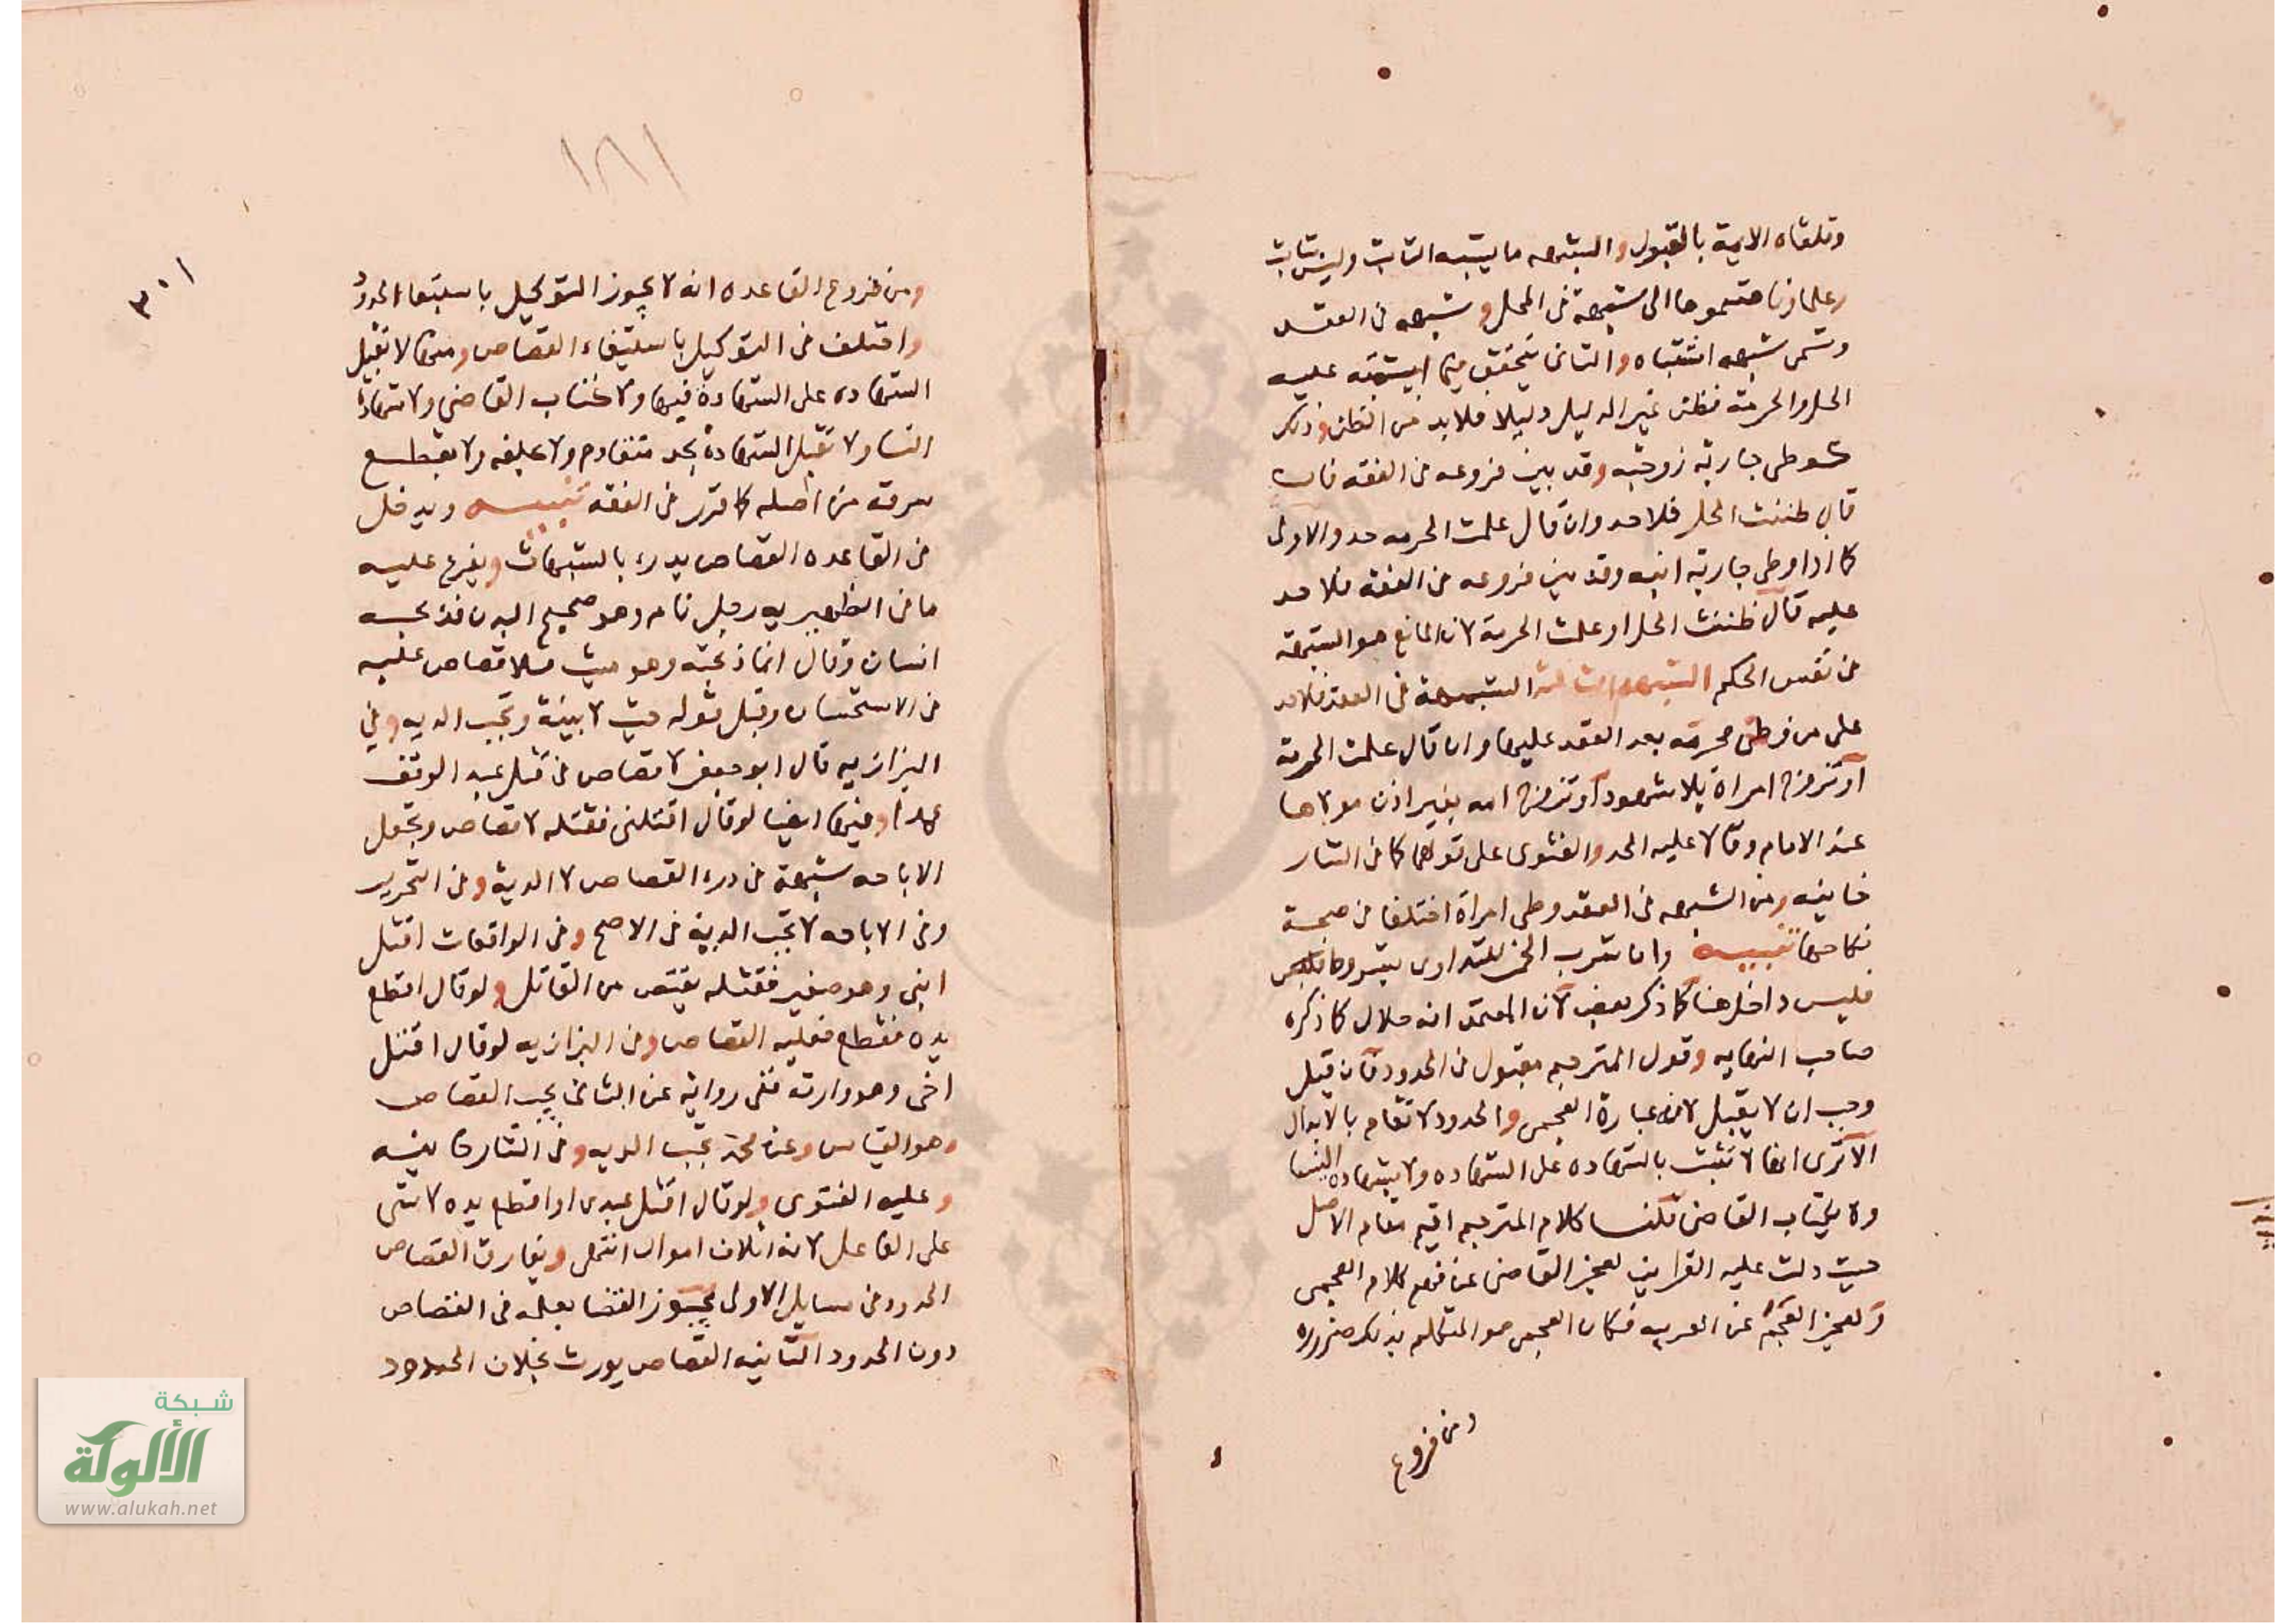 وتلقاه الايمة بالقبول والشبهه ما يشبه الثابت وليس بثابت
وعلماونا قسموها الى شبهة في المحل وشبهه في الفعل
وتسمى شبهه اشتباه والثاني يتحقق فيما اشتبه عليه
الحل والحرمة فظن غير الدليل دليلا فلا بد من الظن وذلك
كوطى جارية زوجته وقد بين فروعه في الفقه فان
قال ظننت الحل فلا حد وان قال علمت الحرمه حد والاولى
كما اذا وطى جارية ابنه وقد بين فروعه في الفقه فلا حد
عليه قال ظننت الحل او علمت الحرمة لان المانع هو الشبهة
في نفس الحكم الشبهه الثالثه الشبهة في العقد فلا حد
على من وطى محرمه بعد العقد عليها وان قال علمت الحرمة
او تزوج امراة بلا شهود او تزوج امه بغير اذن مولاها
عند الامام وقالا عليه الحد والفتوى على قولهما كما في التتار
خانيه ومن الشبهه في العقد وطى امراة اختلفا في صحة
نكاحها تنبيه وان شرب الخمر للتداوى
فليس داخل هنا كما ذكر بعض لان المعتمد انه حلال كما ذكره
صاحب النهايه وقول المترجم مقبول في الحدود فان قيل
وجب ان لا يقبل لان عبارة العجمى والحدود لا تقام بالابدال
الا ترى انها لا تثبت بالشهاده على الشهاده ولا بشهادة النسا
ولا بكتاب القاضى قلنا كلام المترجم اقيم مقام الاصل
حيث دلت عليه القراين لعجز القاضى عن فهم كلام العجمى
ولعجز العجم عن العربيه فكان العجمى هو المتكلم بذلك ضروره
ومن فروع
١٨١
٣٠١
ومن فروع القاعده انه لا يجوز التوكيل باستيفا الحدود
واختلف في التوكيل باستيفاء القصاص ومنها لا تقبل
الشهاده على الشهادة فيها ولا كتاب القاضى ولا شهادة
النسا ولا تقبل الشهادة بحد متقادم ولا تحليف ولا بقطع
سرقه من اصله كما قرر في الفقه تنبيه ويدخل
في القاعده القصاص يدرء بالشبهات ويفرع عليه
ما في الظهيريه رجل نام وهو صحيح البدن فذبحه
انسان وقال انما ذبحته وهو ميت فلا قصاص عليه
في الاستحسان وقبل قوله ميت لا بينة وتجب الديه وفي
البزازيه قال ابو جعفر لا قصاص في قتل عبد الوقف
عمدا وفيها ايضا لو قال اقتلنى فقتله لا قصاص وتجعل
الاباحه شبهة في درء القصاص لا الدية وفي التحرير
وفي الاباحه لا تجب الدية في الاصح وفي الواقعات اقتل
ابنى وهو صغير فقتله يقتص من القاتل ولو قال اقطع
يده فقطع فعليه القصاص وفي البزازيه لو قال اقتل
اخى وهو وارثه ففى رواية عن الثانى يجب القصاص
وهو القياس وعن محمد تجب الديه وفي التتارخانيه
وعليه الفتوى ولو قال اقتل عبدى او اقطع يده لا شى
على الفاعل لانه اتلاف اموال انتهى ويفارق القصاص
الحدود في مسايل الاولى يجوز القضا بعلمه في القصاص
دون الحدود الثانيه القصاص يورث بخلاف الحدود
شبكة
الألوكة
www.alukah.net